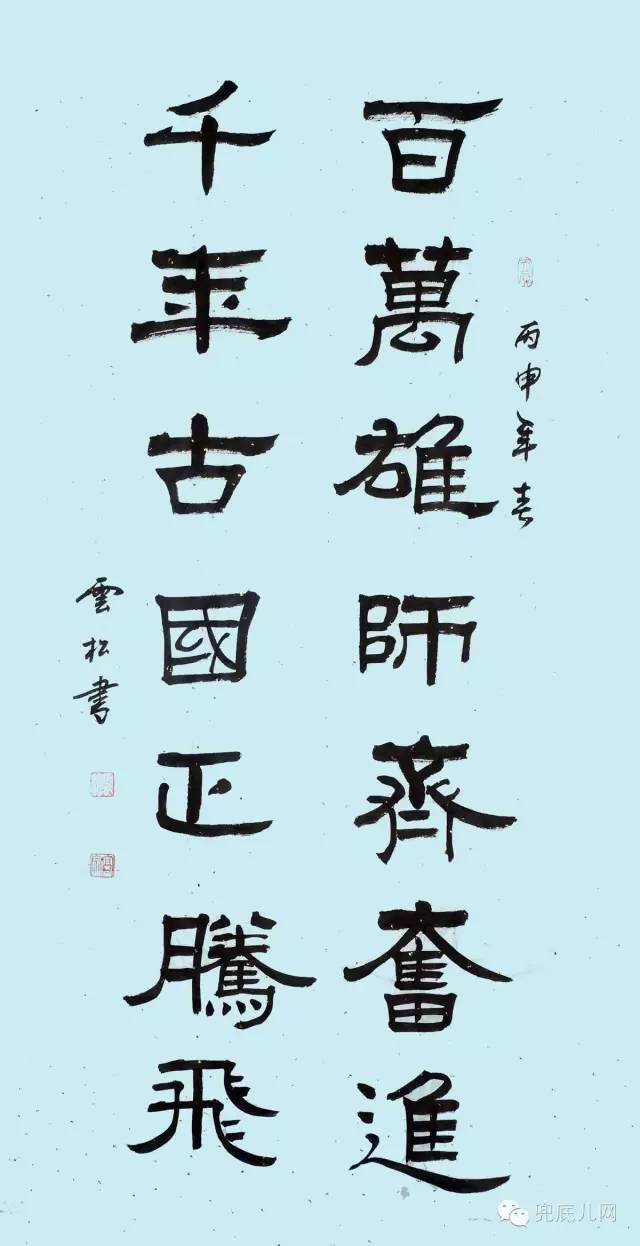 丙申年春
百萬雄師齊奮進
千年古國正騰飛
雲松書
兜底儿网